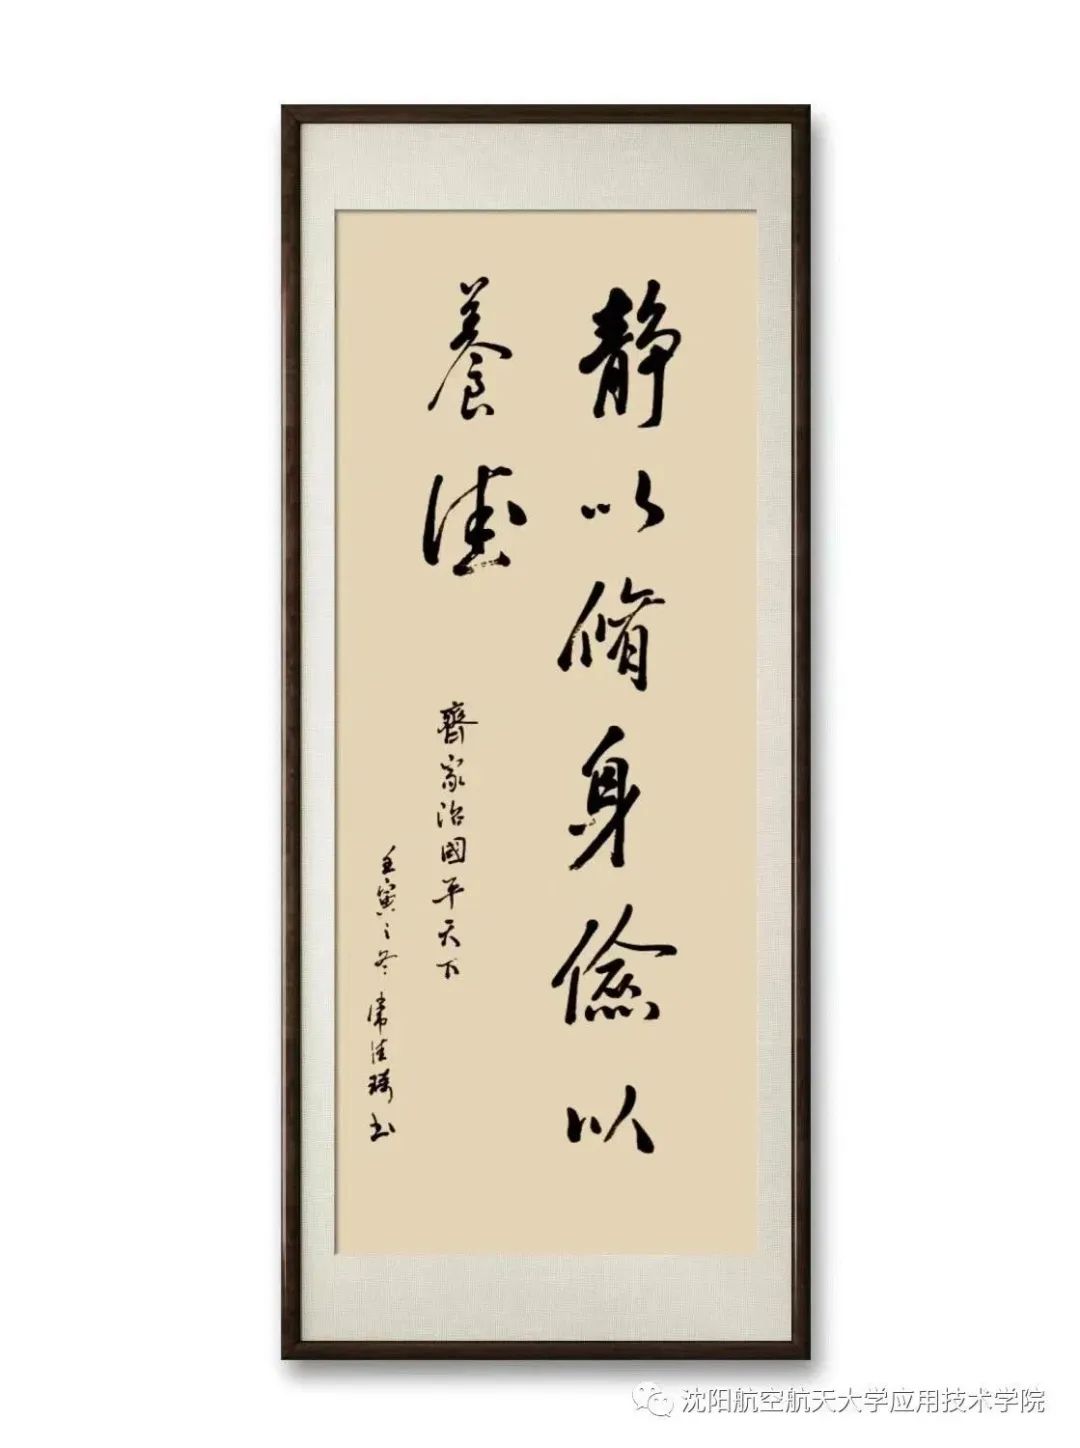 静以脩身儉以
養德
齊家治國平天下
壬寅之冬 常佳琦书
沈阳航空航天大学应用技术学院